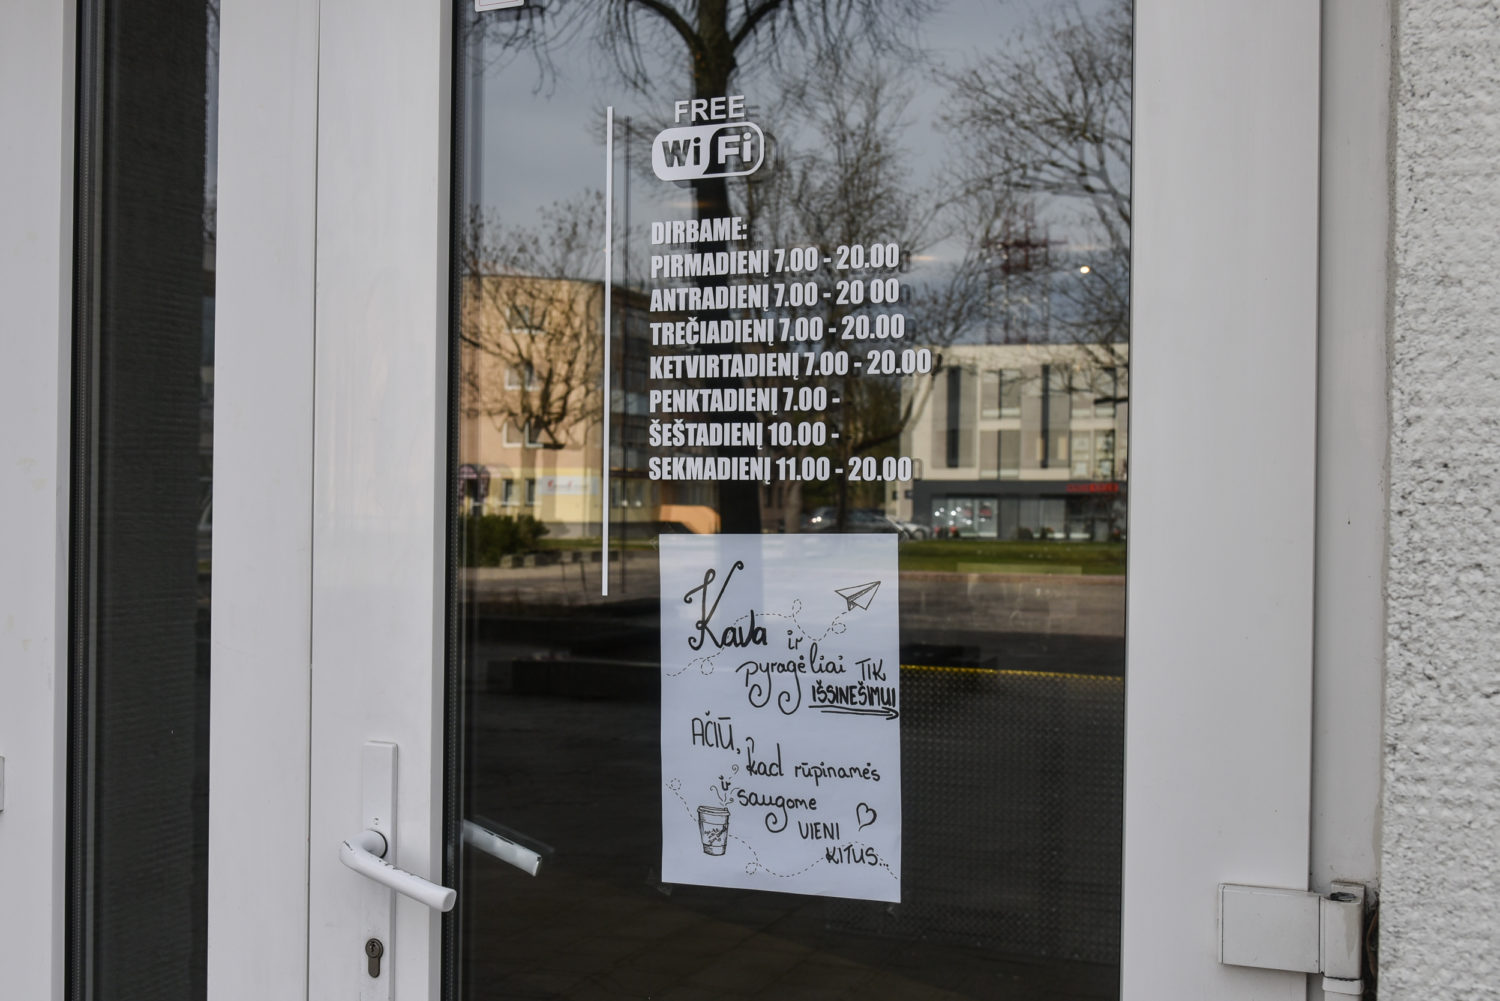 FREE
Wi Fi
DIRBAME:
PIRMADIENĮ 7.00 - 20.00
ANTRADIENĮ 7.00 - 20 00
TREČIADIENĮ 7.00 - 20.00
KETVIRTADIENĮ 7.00 - 20.00
PENKTADIENĮ 7.00 -
ŠEŠTADIENĮ 10.00 -
SEKMADIENĮ 11.00 - 20.00
Kava ir
pyragėliai TIK
IŠSINEŠIMUI
AČIŪ,
kad rūpinamės
ir saugome
VIENI
KITUS...